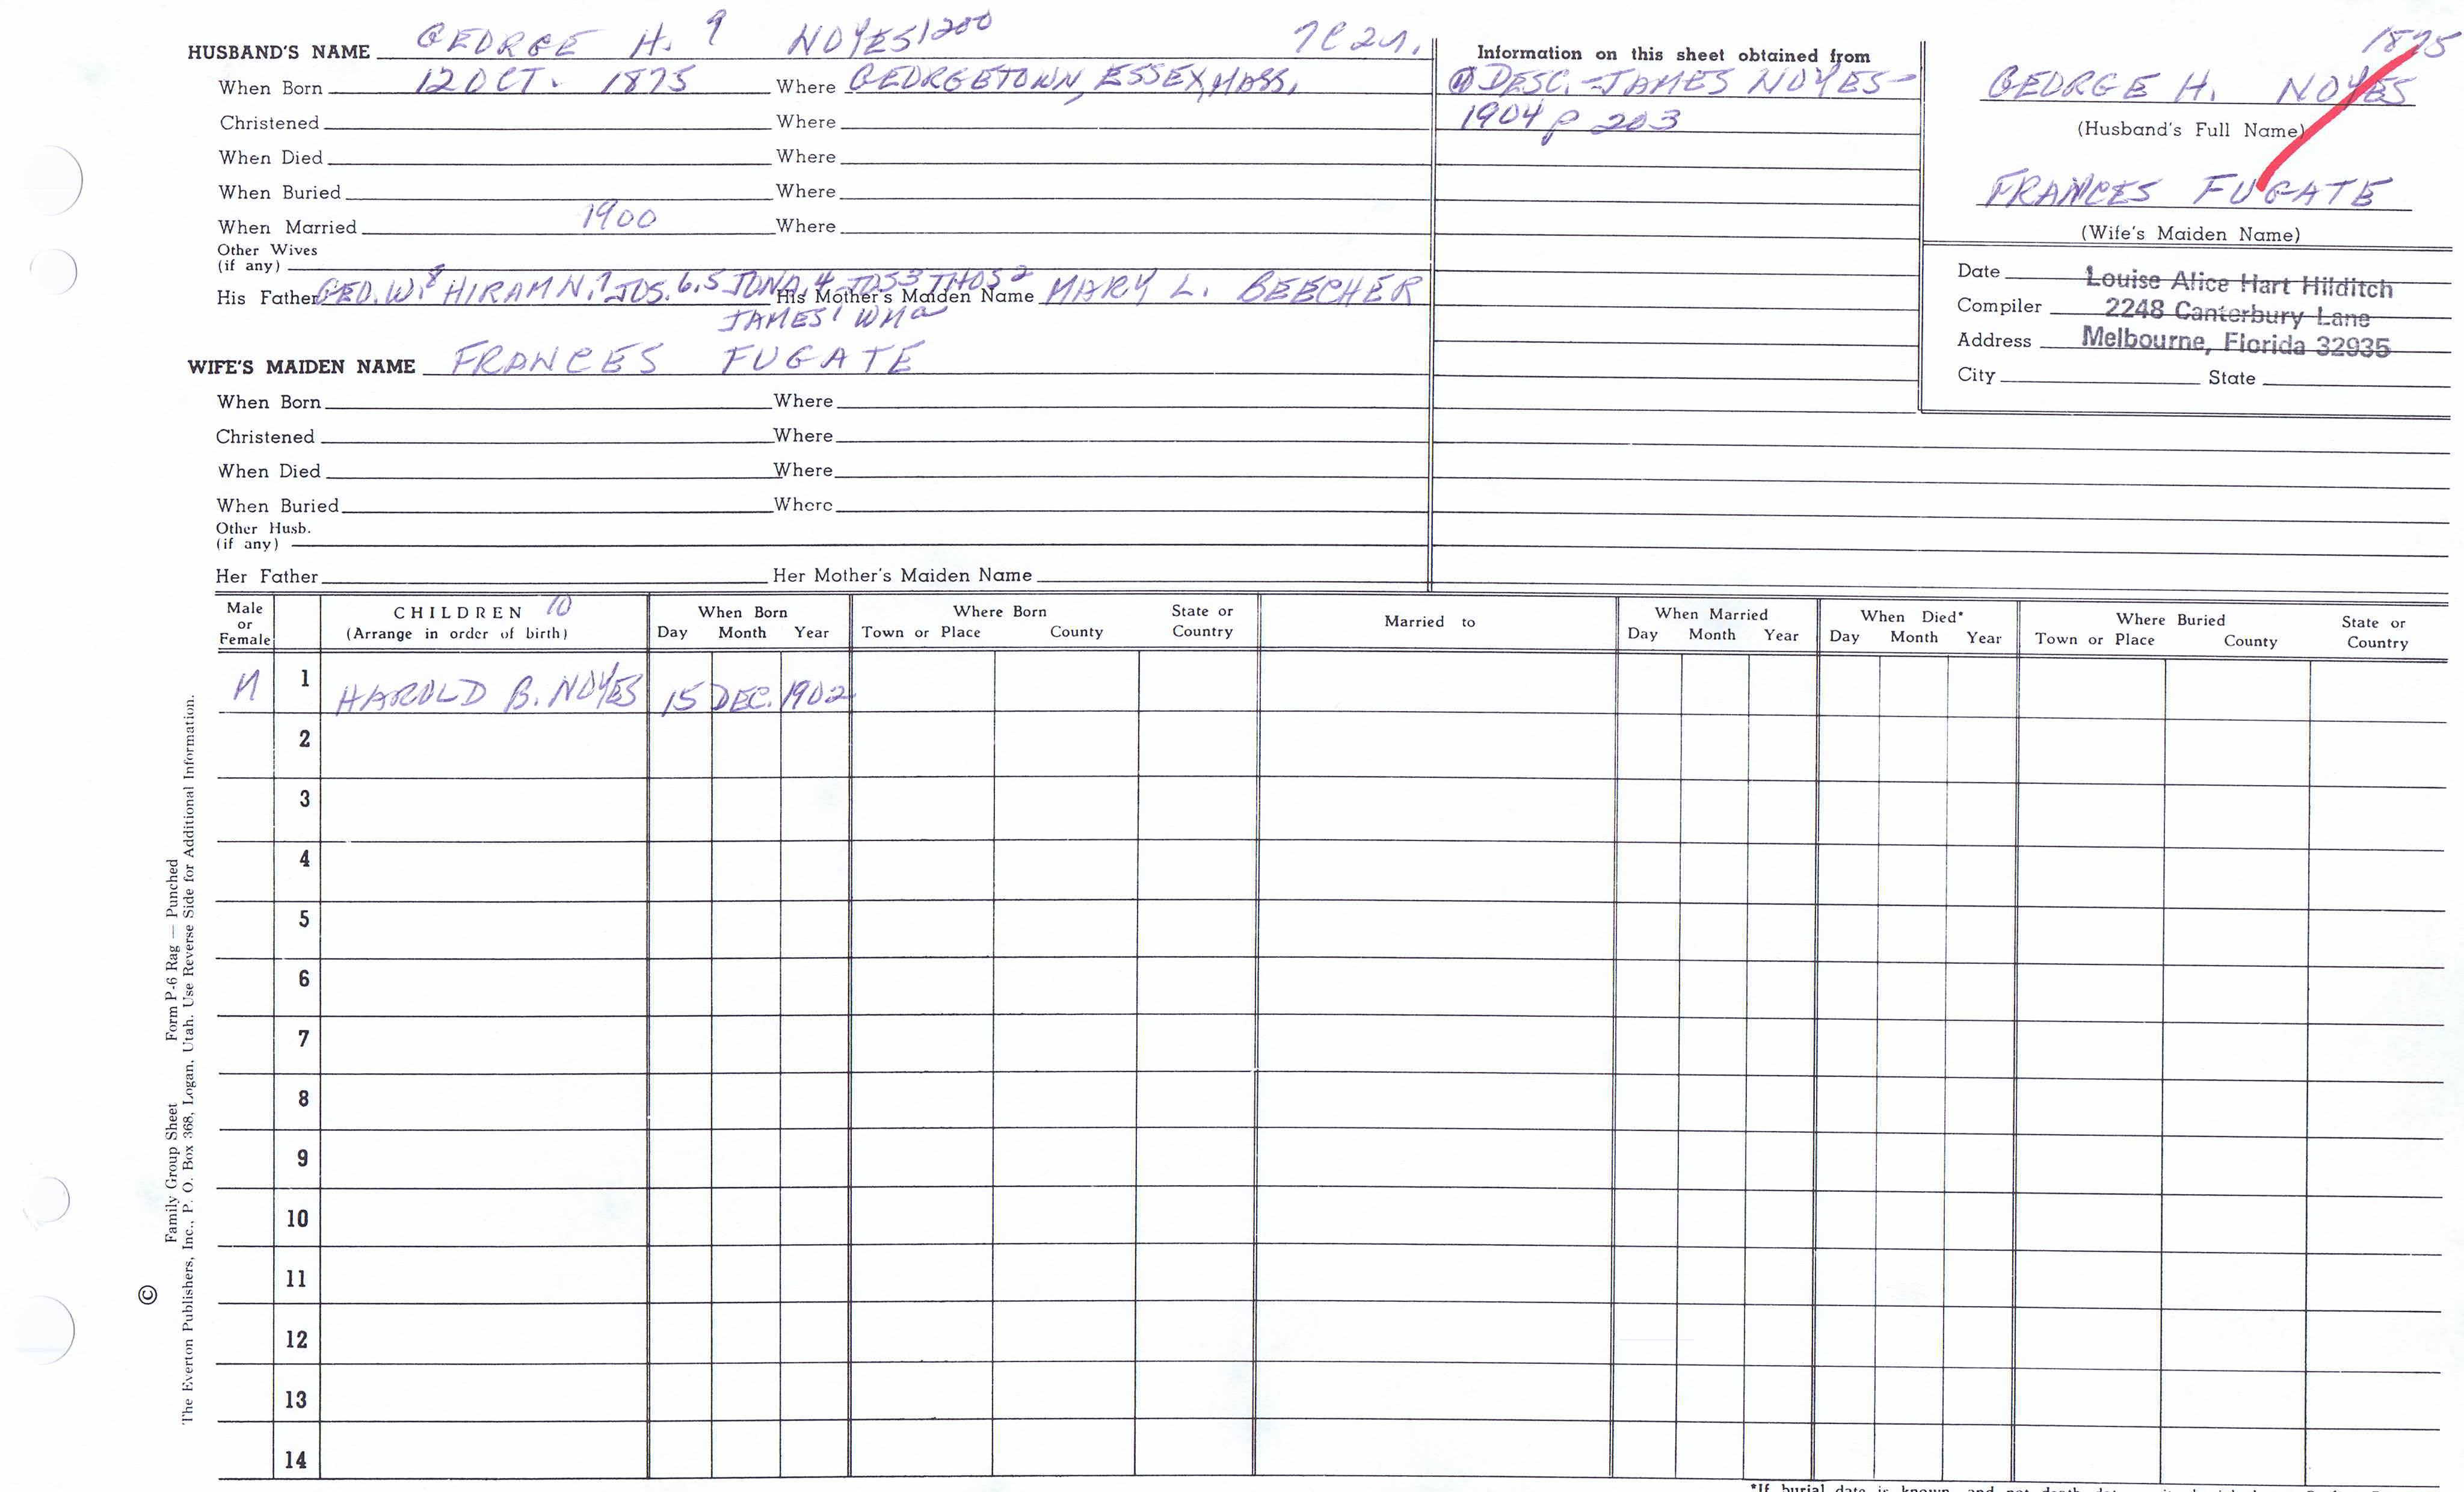 HUSBAND'S NAME GEORGE H. 9 NOYES 1200
When Born 12 OCT. 1875 Where GEORGETOWN, ESSEX, MASS.
Christened Where
When Died Where
When Buried Where
When Married 1900 Where
Other Wives
(if any)
His Father GEO. W.8 HIRAM N.7 JOS. 6,5 JONA. 4 JOS 3 THOS 2 His Mother's Maiden Name MARY L. BEECHER
JAMES 1 WM a
WIFE'S MAIDEN NAME FRANCES FUGATE
When Born Where
Christened Where
When Died Where
When Buried Where
Other Husb.
(if any)
Her Father Her Mother's Maiden Name
Information on this sheet obtained from
DESC. - JAMES NOYES -
1904 p 203
1875
GEORGE H. NOYES
(Husband's Full Name)
FRANCES FUGATE
(Wife's Maiden Name)
Date Louise Alice Hart Hilditch
Compiler 2248 Canterbury Lane
Address Melbourne, Florida 32935
City State
Male or Female CHILDREN 10 (Arrange in order of birth) When Born Day Month Year Where Born Town or Place County State or Country Married to When Married Day Month Year When Died* Day Month Year Where Buried Town or Place County State or Country
M 1 HAROLD B. NOYES 15 DEC. 1902
2
3
4
5
6
7
8
9
10
11
12
13
14
*If burial date is known, and not death date,
© Family Group Sheet Form P-6 Rag — Punched
The Everton Publishers, Inc., P. O. Box 368, Logan, Utah. Use Reverse Side for Additional Information.